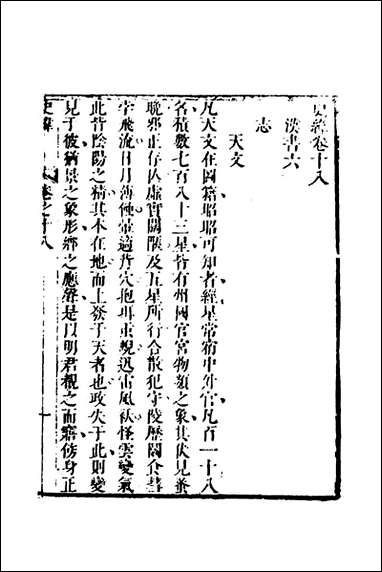 史緯卷十八
漢書六
志
天文
凡天文在圖籍昭昭可知者經星常宿中外官凡百一十八
名積數七百八十三星皆有州國官宮物類之象其伏見蚤
晚邪正存亾虛實闊陿及五星所行合散犯守陵歷鬬食彗
孛飛流日月薄蝕暈適背穴抱珥虹蜺迅雷風祅怪雲變氣
此皆陰陽之精其本在地而上發于天者也政失于此則變
見于彼猶景之象形鄉之應聲是以明君覩之而寤飭身正
史緯
卷之十八
一